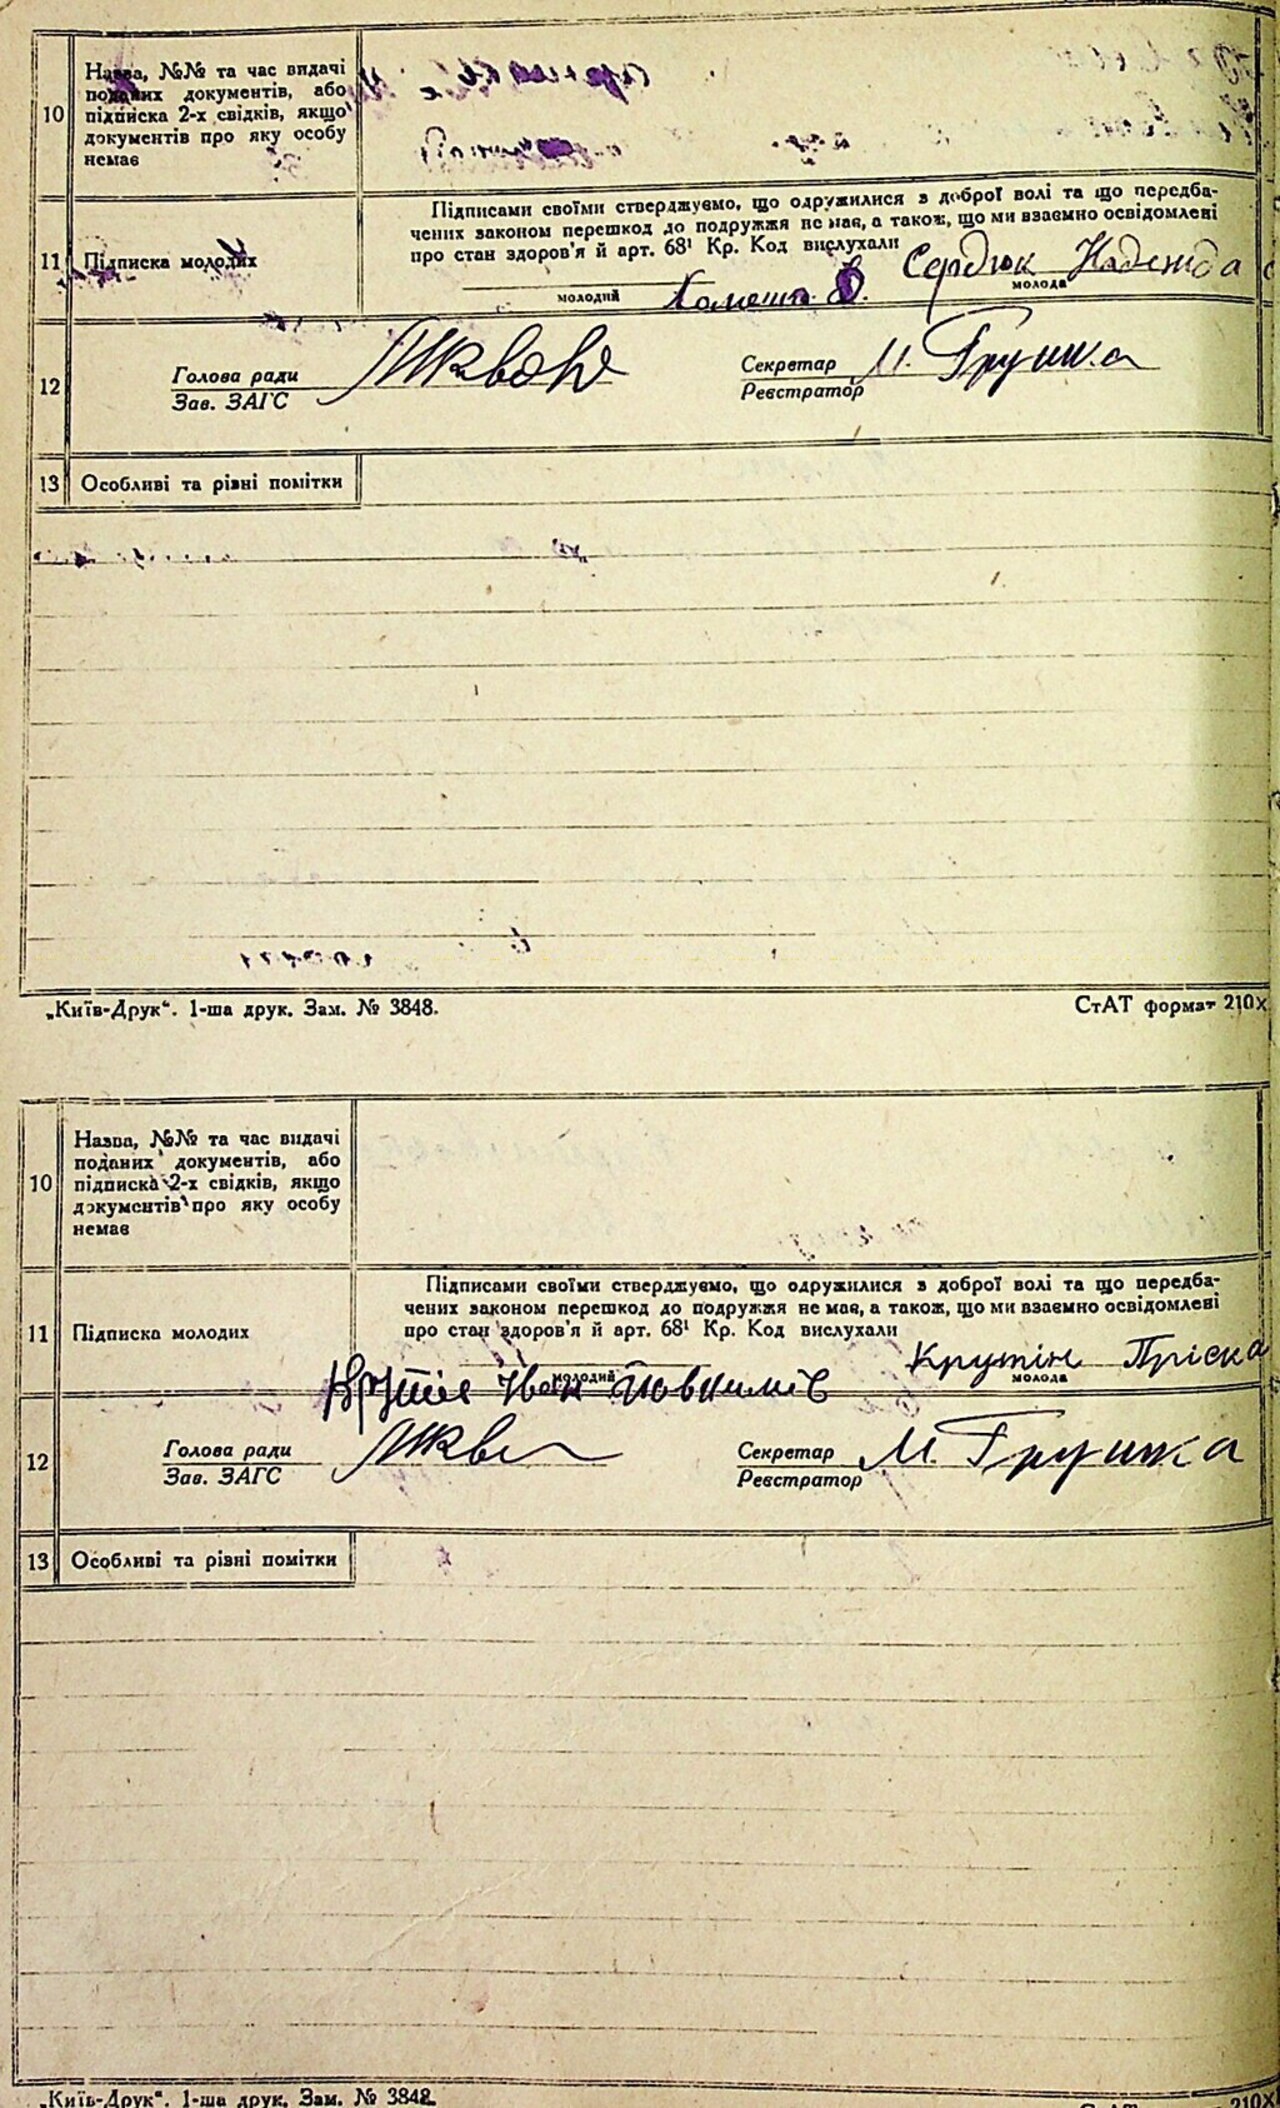 10
Назва, №№ та час видачі
поданих документів, або
підписка 2-х свідків, якщо
документів про яку особу
немає
11
Підписка молодих
Підписами своїми стверджуємо, що одружилися з доброї волі та що передба-
чених законом перешкод до подружжя не має, а також, що ми взаємно освідомлені
про стан здоров'я й арт. 68¹ Кр. Код вислухали
Сердюк Надежда
молодий
молода
12
Голова ради
Зав. ЗАГС
Секретар М. Грушка
Реєстратор
13
Особливі та різні помітки
„Київ-Друк“. 1-ша друк. Зам. № 3848.
СтАТ формат 210х
10
Назва, №№ та час видачі
поданих документів, або
підписка 2-х свідків, якщо
документів про яку особу
немає
11
Підписка молодих
Підписами своїми стверджуємо, що одружилися з доброї волі та що передба-
чених законом перешкод до подружжя не має, а також, що ми взаємно освідомлені
про стан здоров'я й арт. 68¹ Кр. Код вислухали
Крутін Пріска
молодий
молода
Іван
12
Голова ради
Зав. ЗАГС
Секретар М. Грушка
Реєстратор
13
Особливі та різні помітки
„Київ-Друк“. 1-ша друк. Зам. № 3848.
210х